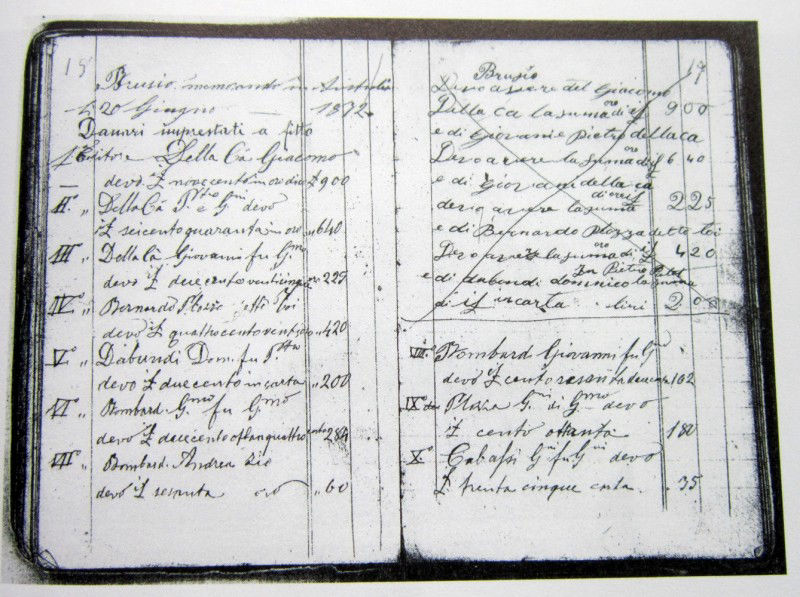 15
Brusio memorando in Australia
li 20 Giugno 1872
Danari imprestati a fitto
I° Creditore Della Cà Giacomo
devo £ novecento in oro dico £ 900
II° " Della Cà P.tro e G.ni devo
£ seicento quaranta in oro " 640
III° " Della Cà Giovani fu G.mo
devo £ duecento venticinque oro 225
IV° " Bernardo Plozza detto Toi
devo £ quattrocento venti oro " 420
V° " Dabundi Dom. fu P.tro
devo £ duecento in carta " 200
VI° " Bombard. G.mo fu G.mo
devo £ duecento ottanquattro carta 284
VII° " Bombard. Andrea Zio
devo £ sesanta oro " 60
17
Brusio
Devo avere del Giacomo
Della ca la suma di oro £ 900
e di Giovani e Pietro della ca
Devo avere la suma di oro £ 640
e di Giovani della ca
devo avere la suma di oro £ 225
e di Bernardo Plozza detto toi
Devo avere la suma di oro £ 420
e di dabondi domnico fu Pietro la suma
di £ in carta lire 200
VIII° Bombard Giovanni fu G.
devo £ cento resenta due carta 162
IX° Plozza G. di G.mo devo
£ cento ottanta 180
X° Gabassi G. fu G. devo
£ trenta cinque carta 35